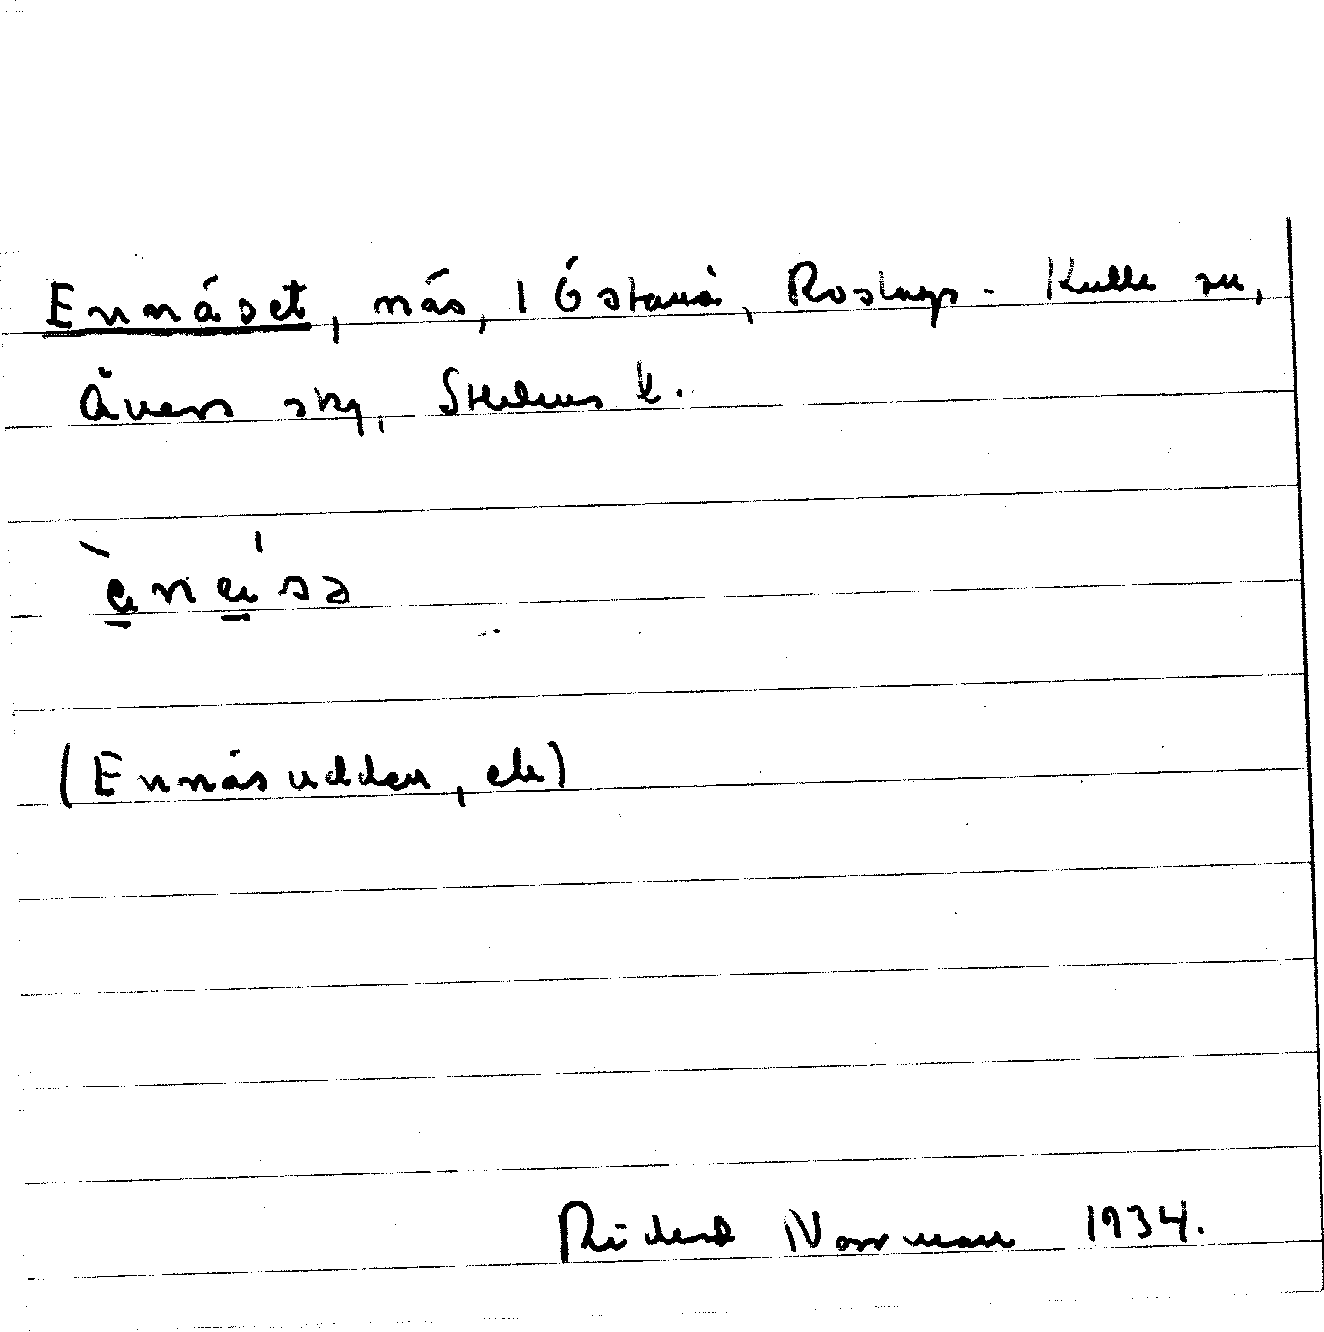 Ennäset, näs, i Östanå, Roslags-Kulla sn,
Åkers skg, Sthlms l.
(Ennäsudden, etc)
Rickard Norrman 1934.